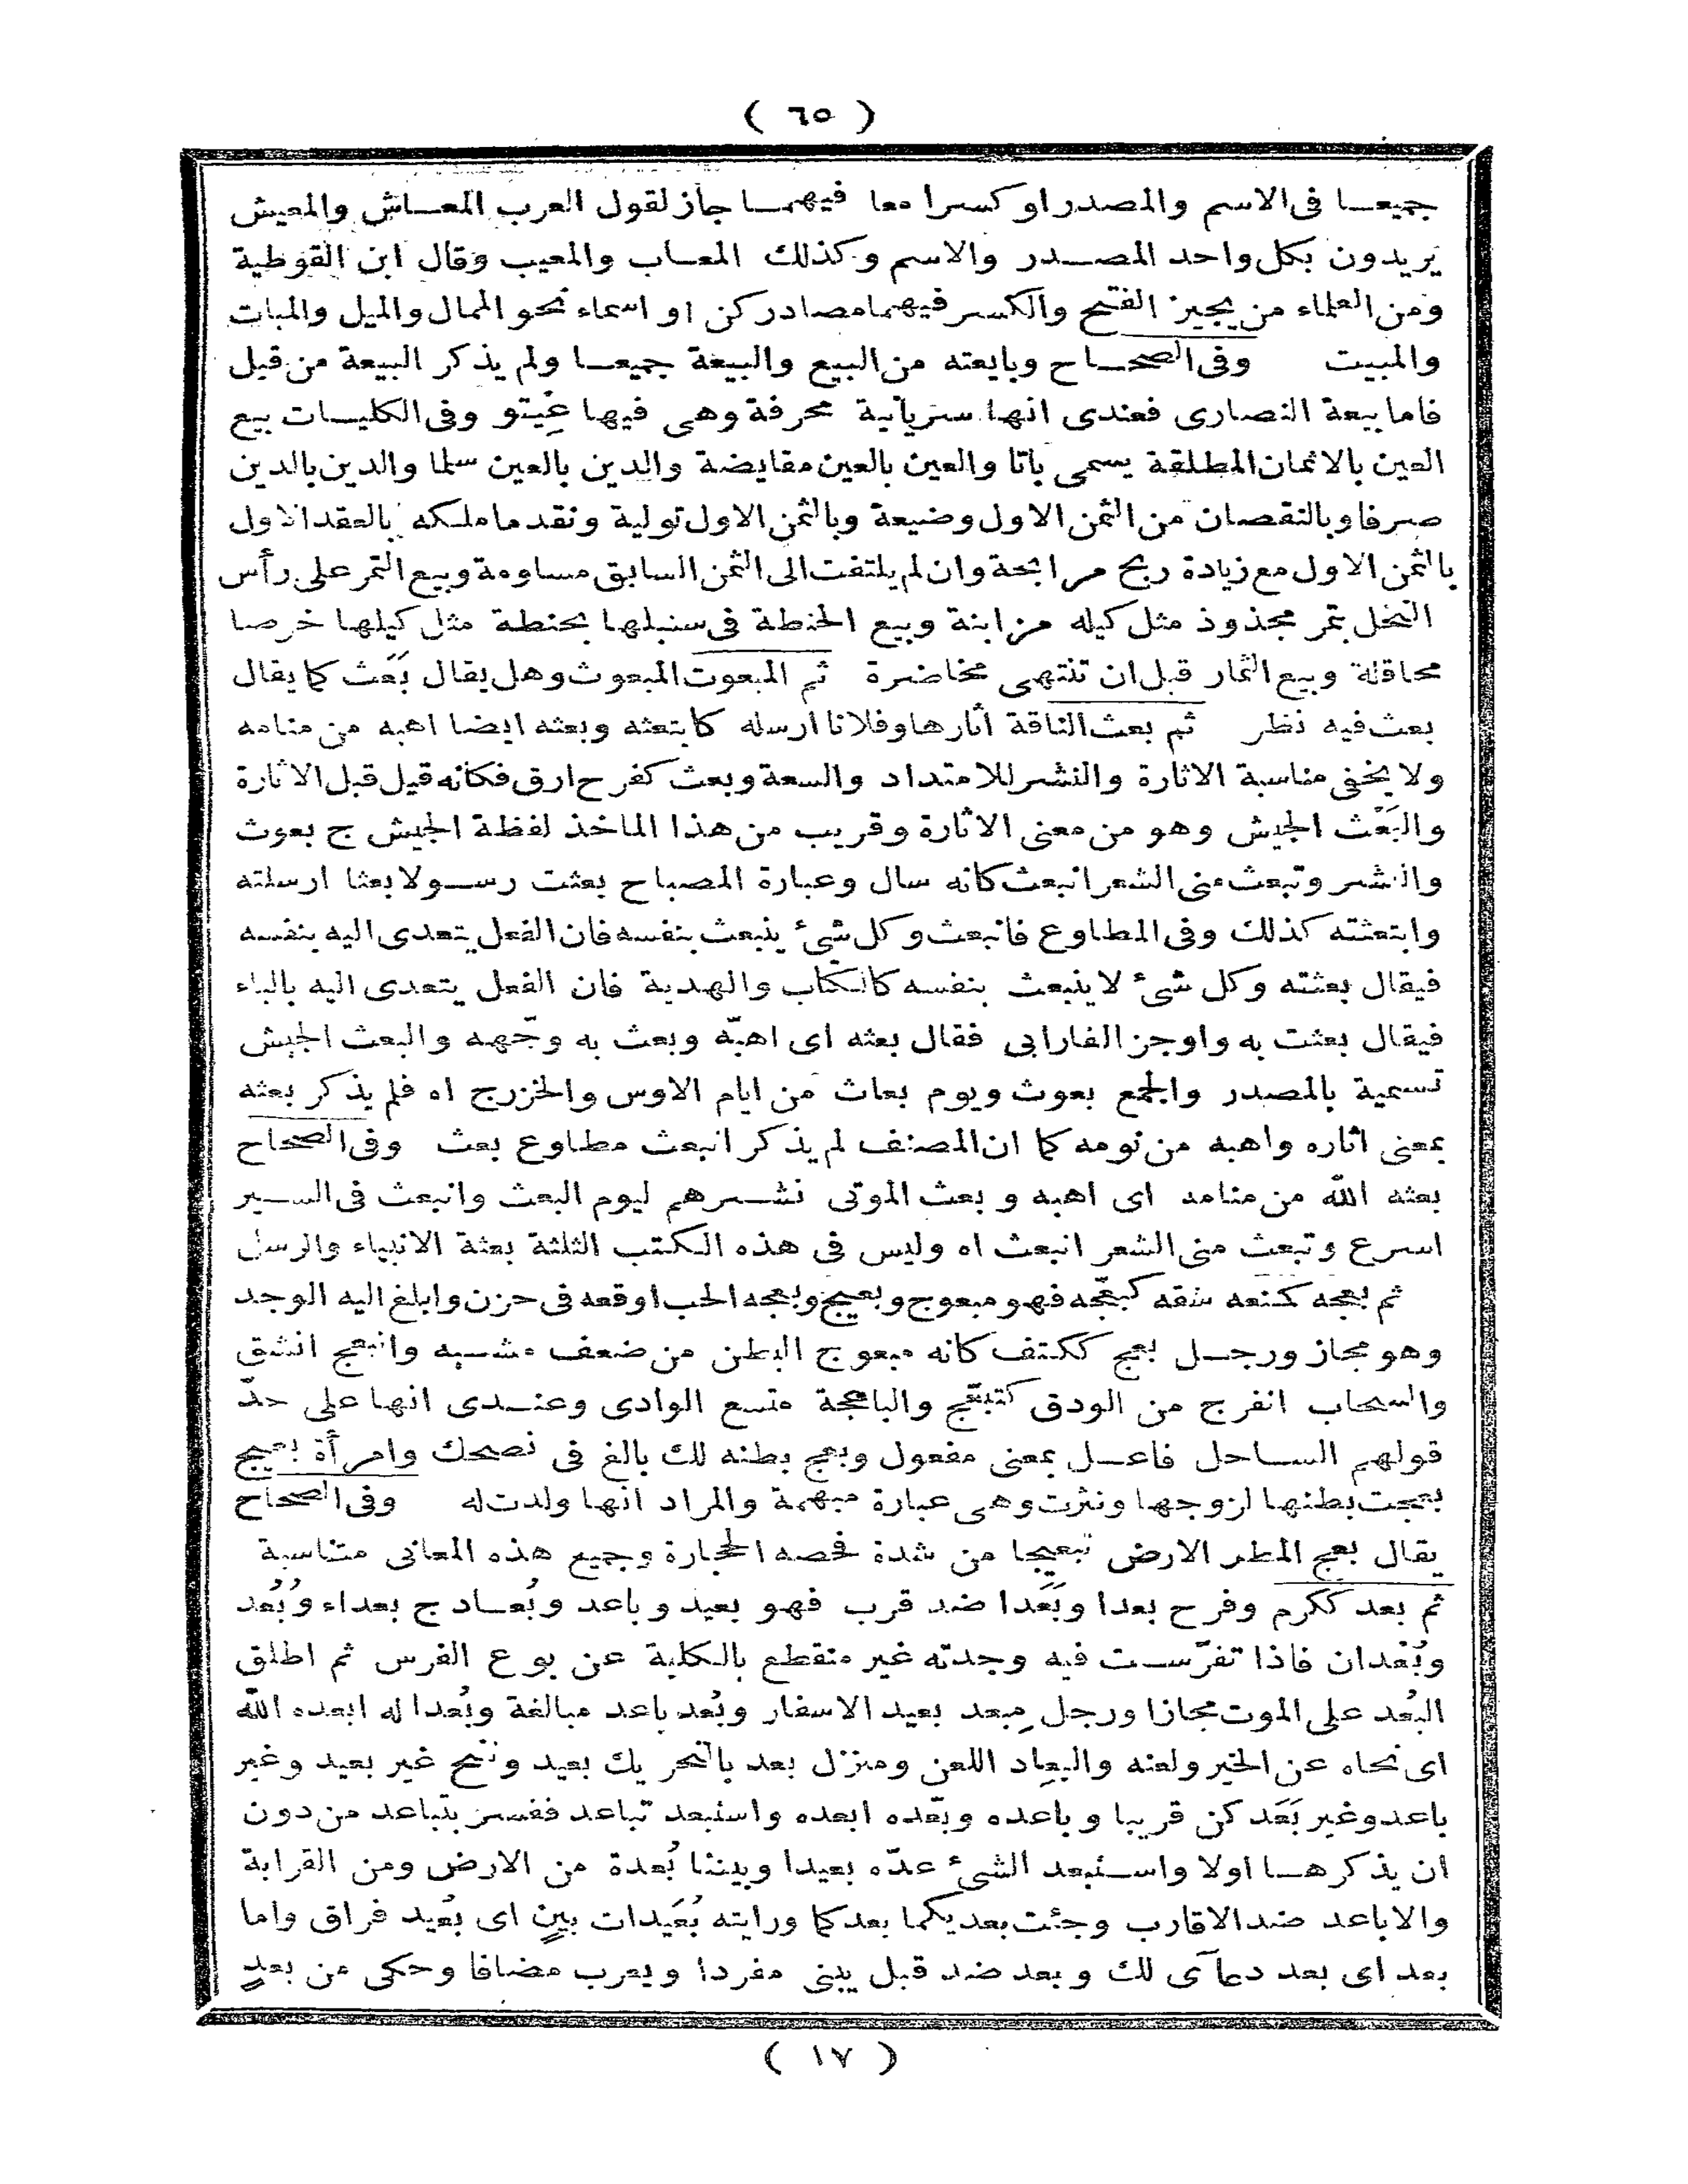 ( ٦٥ )
جميعا فى الاسم والمصدر او كسرا معا فيهما جاز لقول العرب المعاش والمعيش
يريدون بكل واحد المصدر والاسم وكذلك المعاب والمعيب وقال ابن القوطية
ومن العلماء من يجيز الفتح والكسر فيهما مصادر كن او اسماء نحو الممال والمميل والمبات
والمبيت وفى الصحاح وبايعته من البيع والبيعة جميعا ولم يذكر البيعة من قبل
فاما بيعة النصارى فعندى انها سريانية محرفة وهى فيها عيتو وفى الكليات بيع
العين بالاثمان المطلقة يسمى باتا والعين بالعين مقايضة والدين بالعين سلما والدين بالدين
صرفا وبالنقصان من الثمن الاول وضيعة وبالثمن الاول تولية ونقد ما ملكه بالعقد الاول
بالثمن الاول مع زيادة ربح مرابحة وان لم يلتفت الى الثمن السابق مساومة وبيع التمر على رأس
النخل بتمر مجذوذ مثل كيله مزابنة وبيع الحنطة فى سنبلها بحنطة مثل كيلها خرصا
محاقلة وبيع الثمار قبل ان تنتهى مخاضرة ثم المبعوت المبعوث وهل يقال بَعَت كما يقال
بعث فيه نظر ثم بعث الناقة أثارها وفلانا ارسله كابتعثه وبعثه ايضا اهبه من منامه
ولا يخفى مناسبة الاثارة والنشر للامتداد والسعة وبعث كفرح ارق فكأنه قيل قبل الاثارة
والبَعْث الجيش وهو من معنى الاثارة وقريب من هذا الماخذ لفظة الجيش ج بعوث
والنشر وتبعث منى الشعر انبعث كانه سال وعبارة المصباح بعثت رسولا بعثا ارسلته
وابتعثته كذلك وفى المطاوع فانبعث وكل شىء ينبعث بنفسه فان الفعل يتعدى اليه بنفسه
فيقال بعثته وكل شىء لا ينبعث بنفسه كالكتاب والهدية فان الفعل يتعدى اليه بالباء
فيقال بعثت به واوجز الفارابى فقال بعثه اى اهبّه وبعث به وجّهه والبعث الجيش
تسمية بالمصدر والجمع بعوث ويوم بعاث من ايام الاوس والخزرج اه فلم يذكر بعثه
بمعنى اثاره واهبه من نومه كما ان المصنف لم يذكر انبعث مطاوع بعث وفى الصحاح
بعثه الله من منامه اى اهبه وبعث الموتى نشرهم ليوم البعث وانبعث فى السير
اسرع وتبعث منى الشعر انبعث اه وليس فى هذه الكتب الثلثة بعثة الانبياء والرسل
ثم بعجه كنعه شقه كبعّجه فهو مبعوج وبعيج وبعجه الحب اوقعه فى حزن وابلغ اليه الوجد
وهو مجاز ورجل بعج ككتف كانه مبعوج البطن من ضعف مشيه وانبعج انشق
والسحاب انفرج من الودق كتبعّج والباعجة متسع الوادى وعندى انها على حدّ
قولهم الساحل فاعل بمعنى مفعول وبعج بطنه لك بالغ فى نصحك وامرأة بعيج
بعجت بطنها لزوجها ونثرت وهى عبارة مبهمة والمراد انها ولدت له وفى الصحاح
يقال بعج المطر الارض تبعيجا من شدة فحصه الحجارة وجميع هذه المعانى متناسبة
ثم بعد ككرم وفرح بعدا وبَعَدا ضد قرب فهو بعيد وباعد وبُعاد ج بعداء وبُعُد
وبُعْدان فاذا تفرّست فيه وجدته غير منقطع بالكلية عن بوع الفرس ثم اطلق
البُعْد على الموت مجازا ورجل مِبعد بعيد الاسفار وبُعْد باعد مبالغة وبُعدا له ابعده الله
اى نحاه عن الخير ولعنه والبِعاد اللعن ومنزل بعد بالتحريك بعيد وتنح غير بعيد وغير
باعد وغير بَعَد كن قريبا وباعده وبعّده ابعده واستبعد تباعد ففسر بتباعد من دون
ان يذكرها اولا واستبعد الشىء عدّه بعيدا وبيننا بُعدة من الارض ومن القرابة
والاباعد ضد الاقارب وجئت بعديكما بعدكما ورايته بُعَيدات بينٍ اى بُعَيد فراق واما
بعد اى بعد دعآى لك وبعد ضد قبل يبنى مفردا ويعرب مضافا وحكى من بعدٍ
( ١٧ )